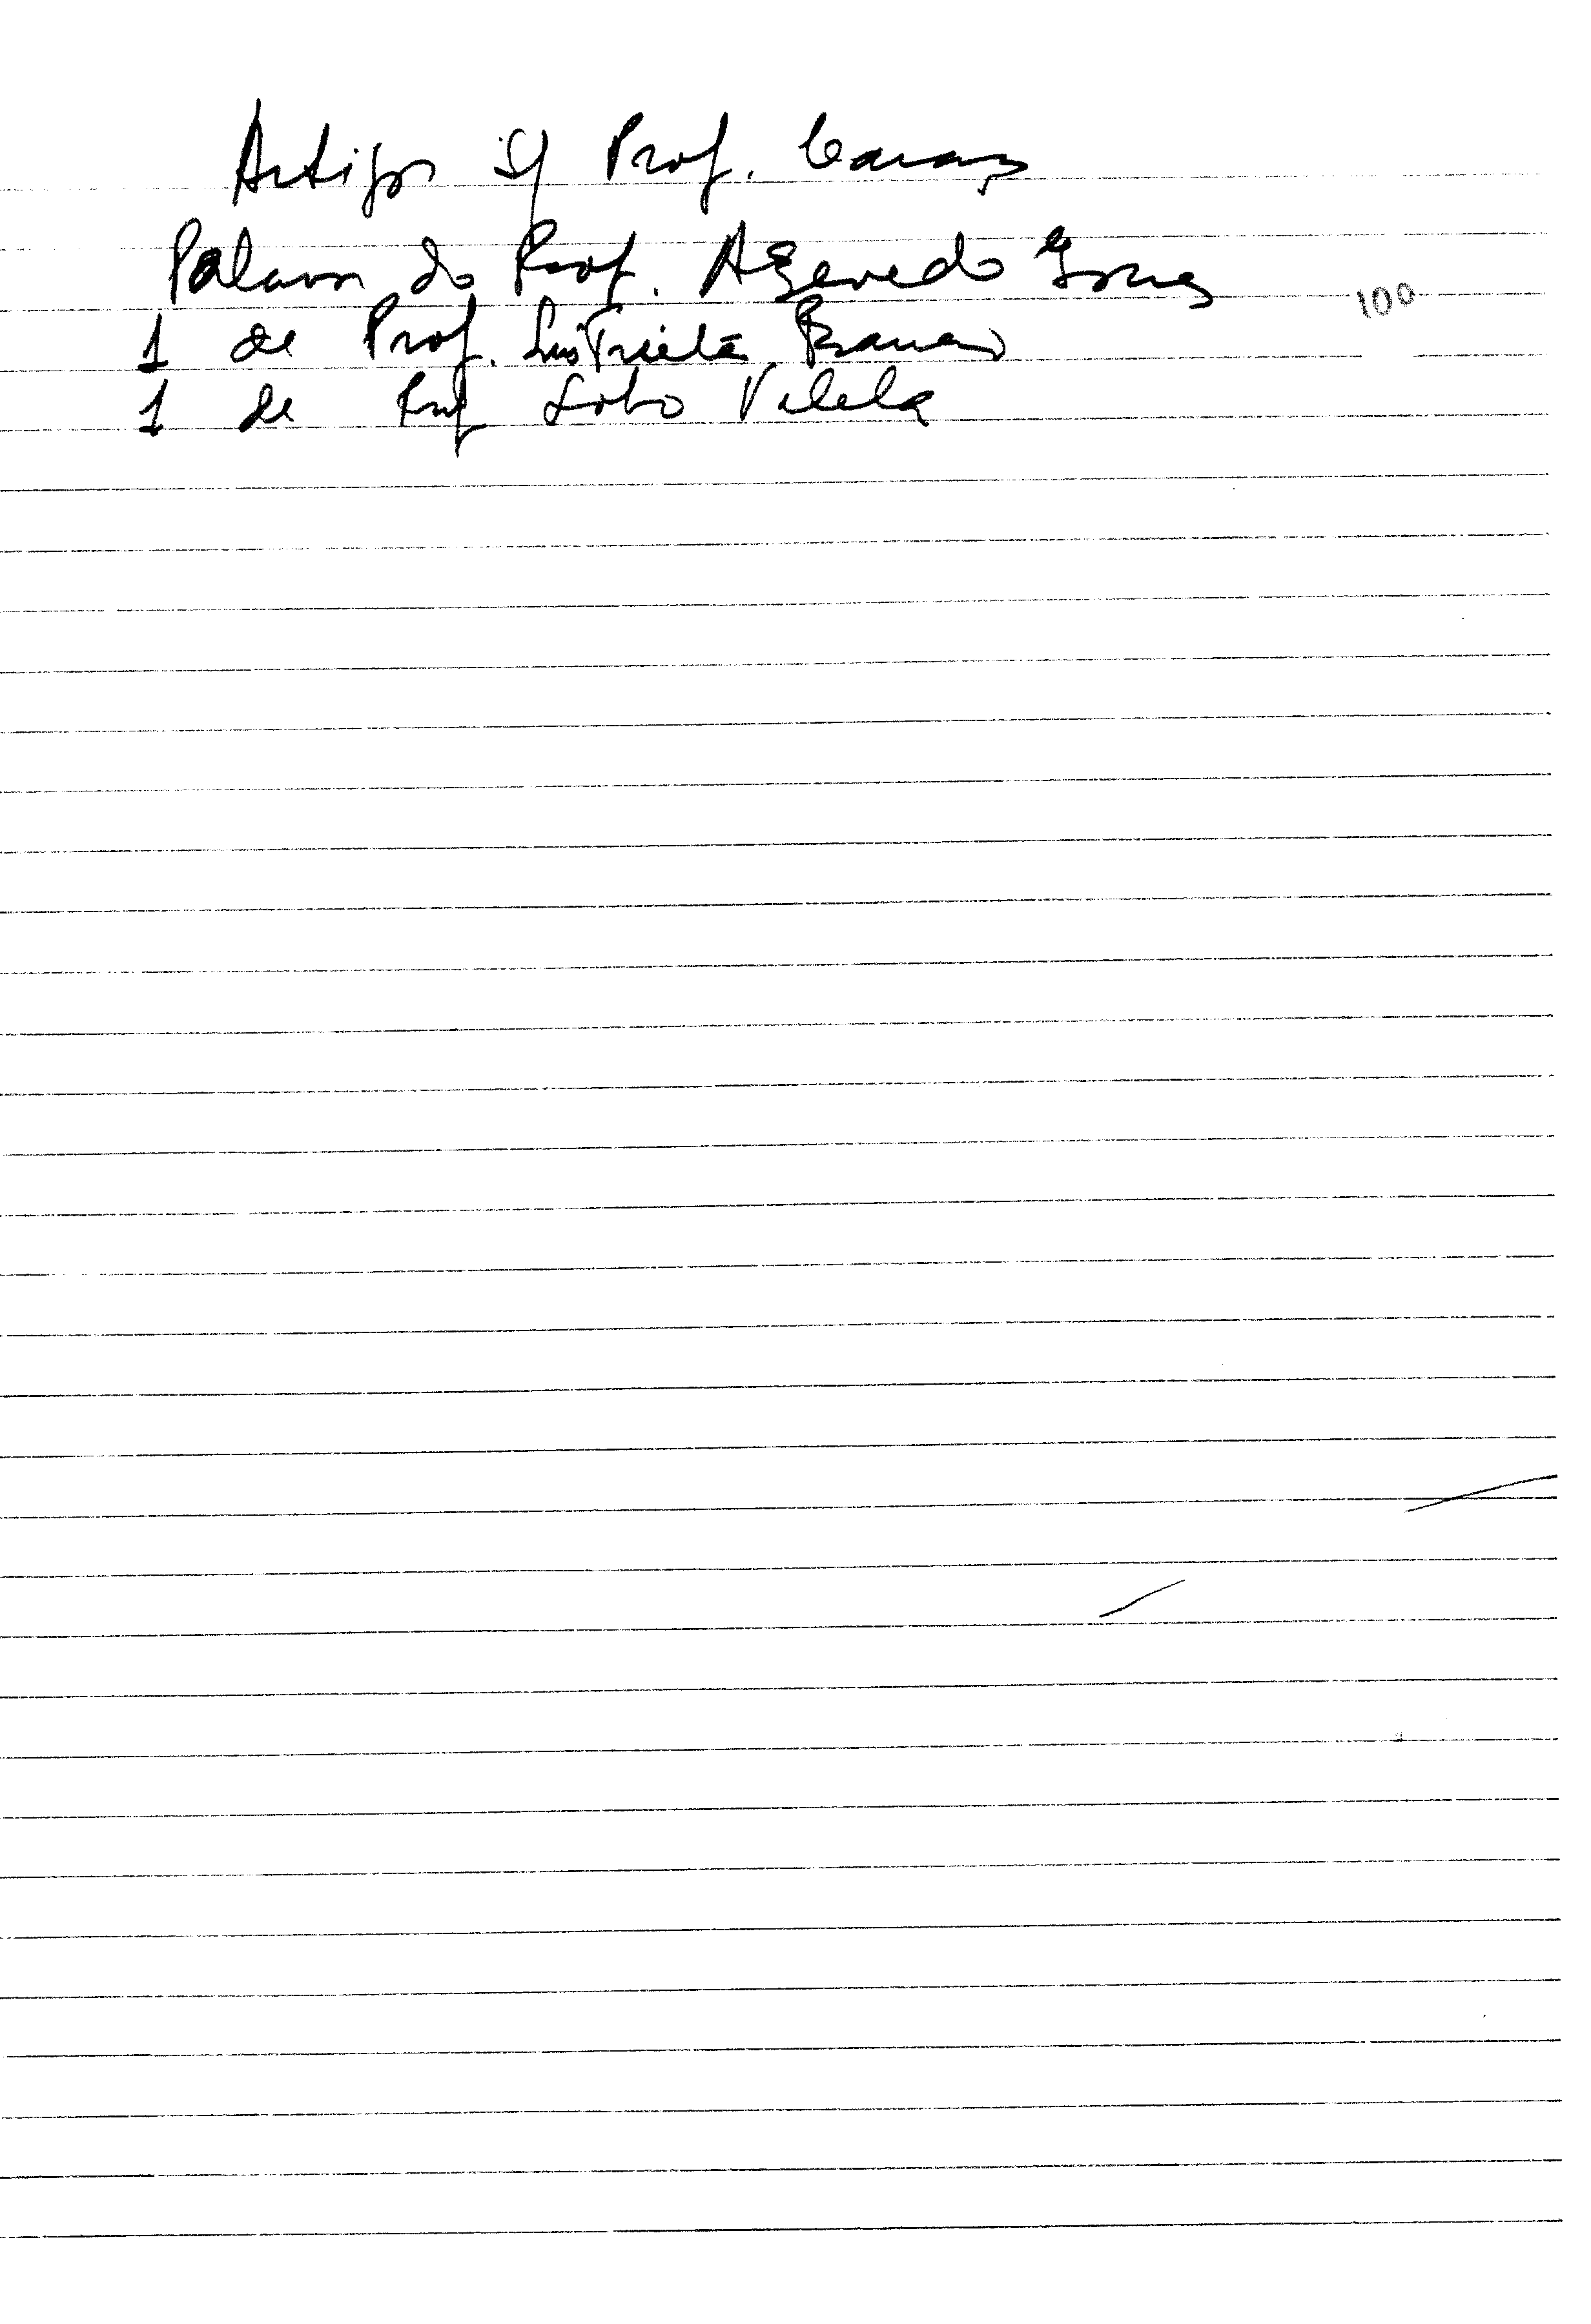 Artigos s/ Prof. Caraça
Palavras do Prof. Azevedo Gomes
100
1 de Prof. Luis Freire
1 de Prof Lobo Vilela